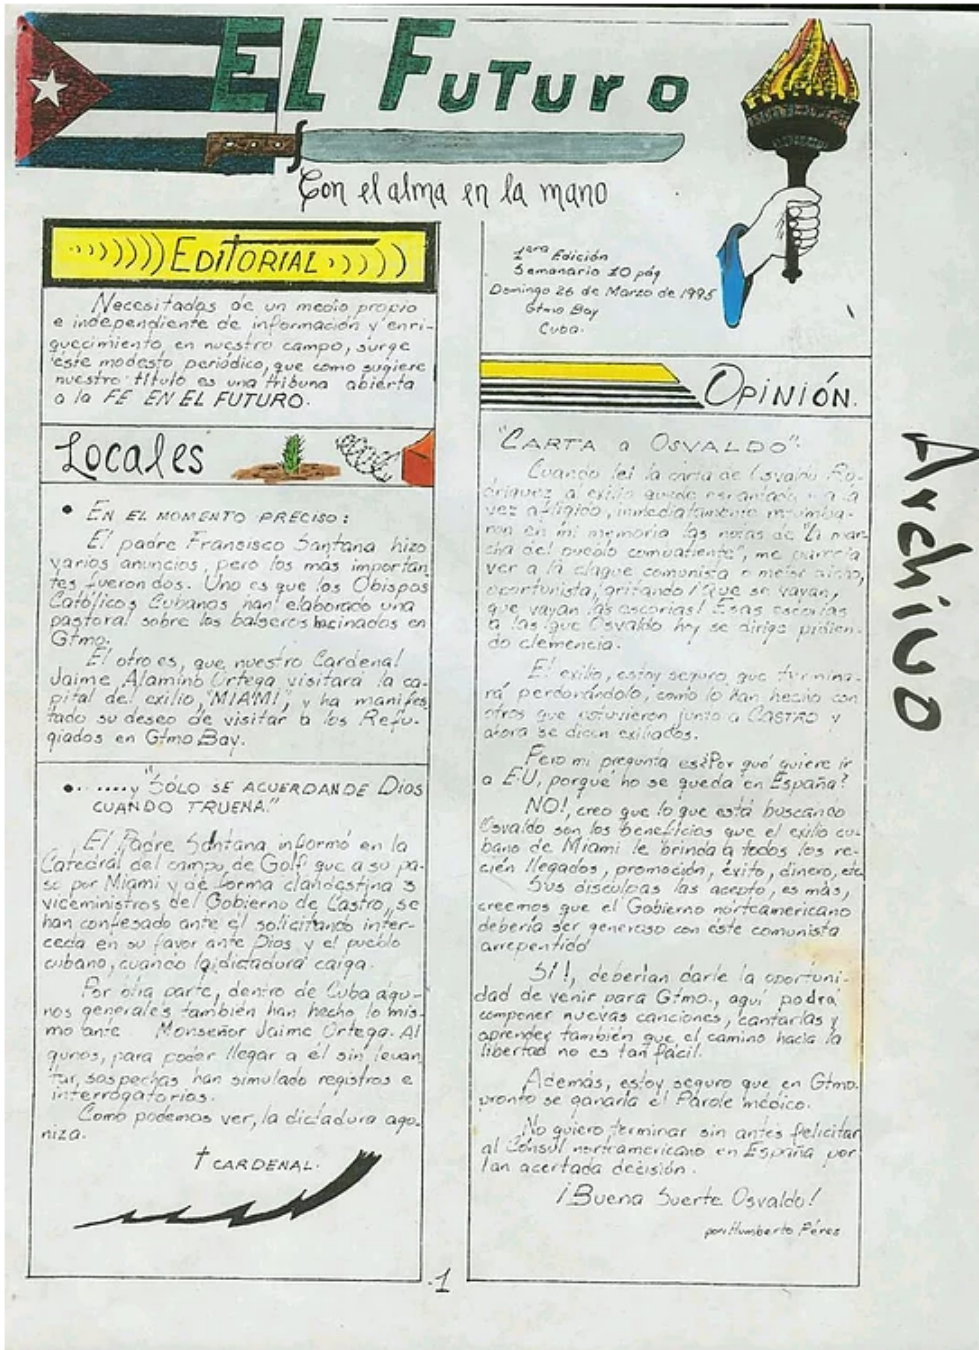 EL FuTuro
Con el alma en la mano
EDITORIAL
Necesitados de un medio propio
e independiente de información y enri-
quecimiento en nuestro campo, surge
este modesto periódico, que como sugiere
nuestro título es una tribuna abierta
a la FE EN EL FUTURO.
Locales
• EN EL MOMENTO PRECISO:
El padre Francisco Santana hizo
varios anuncios, pero los más importan
tes fueron dos. Uno es que los Obispos
Católicos Cubanos han elaborado una
pastoral sobre los balseros hacinados en
Gtmo.
El otro es, que nuestro Cardenal
Jaime Alamino Ortega visitará la ca-
pital del exilio, "MIAMI", y ha manifes
tado su deseo de visitar a los Refu-
giados en Gtmo Bay.
•.......y "SÓLO SE ACUERDAN DE DIOS
CUANDO TRUENA."
El Padre Santana informó en la
Catedral del campo de Golf que a su pa-
so por Miami y de forma clandestina 3
viceministros del Gobierno de Castro, se
han confesado ante él solicitando inter-
ceda en su favor ante Dios y el pueblo
cubano, cuando la dictadura caiga.
Por otra parte, dentro de Cuba algu-
nos generales también han hecho lo mis-
mo ante Monseñor Jaime Ortega. Al
gunos, para poder llegar a él sin levan
tar, sospechas han simulado registros e
interrogatorios.
Como podemos ver, la dictadura ago-
niza.
† CARDENAL.
1era Edición
Semanario 10 pág
Domingo 26 de Marzo de 1995
Gtmo Bay
Cuba.
OPINIÓN.
"CARTA a OSVALDO"
Cuando leí la carta de Osvaldo Ro-
dríguez al exilio quedé espantado y a la
vez afligido, inmediatamente retumba-
ron en mi memoria las notas de "La mar-
cha del pueblo combatiente", me parecía
ver a la claque comunista o mejor dicho,
oportunista, gritando ¡Que se vayan,
que vayan las escorias! Esas escorias
a las que Osvaldo hoy se dirige pidien-
do clemencia.
El exilio, estoy seguro, que termina-
rá perdonándolo, como lo han hecho con
otros que estuvieron junto a CASTRO y
ahora se dicen exiliados.
Pero mi pregunta es ¿Por qué quiere ir
a E.U, porqué no se queda en España?
NO!, creo que lo que está buscando
Osvaldo son los beneficios que el exilio cu-
bano de Miami le brinda a todos los re-
cién llegados, promoción, éxito, dinero, etc
Sus disculpas las acepto, es más,
creemos que el Gobierno norteamericano
debería ser generoso con éste comunista
arrepentido
SI!, deberían darle la oportuni-
dad de venir para Gtmo., aquí podrá
componer nuevas canciones, cantarlas y
aprender también que el camino hacia la
libertad no es tan fácil.
Además, estoy seguro que en Gtmo.
pronto se ganaría el Parole médico.
No quiero terminar sin antes felicitar
al Cónsul norteamericano en España por
tan acertada decisión.
¡Buena Suerte Osvaldo!
por: Humberto Pérez
1
Archivo